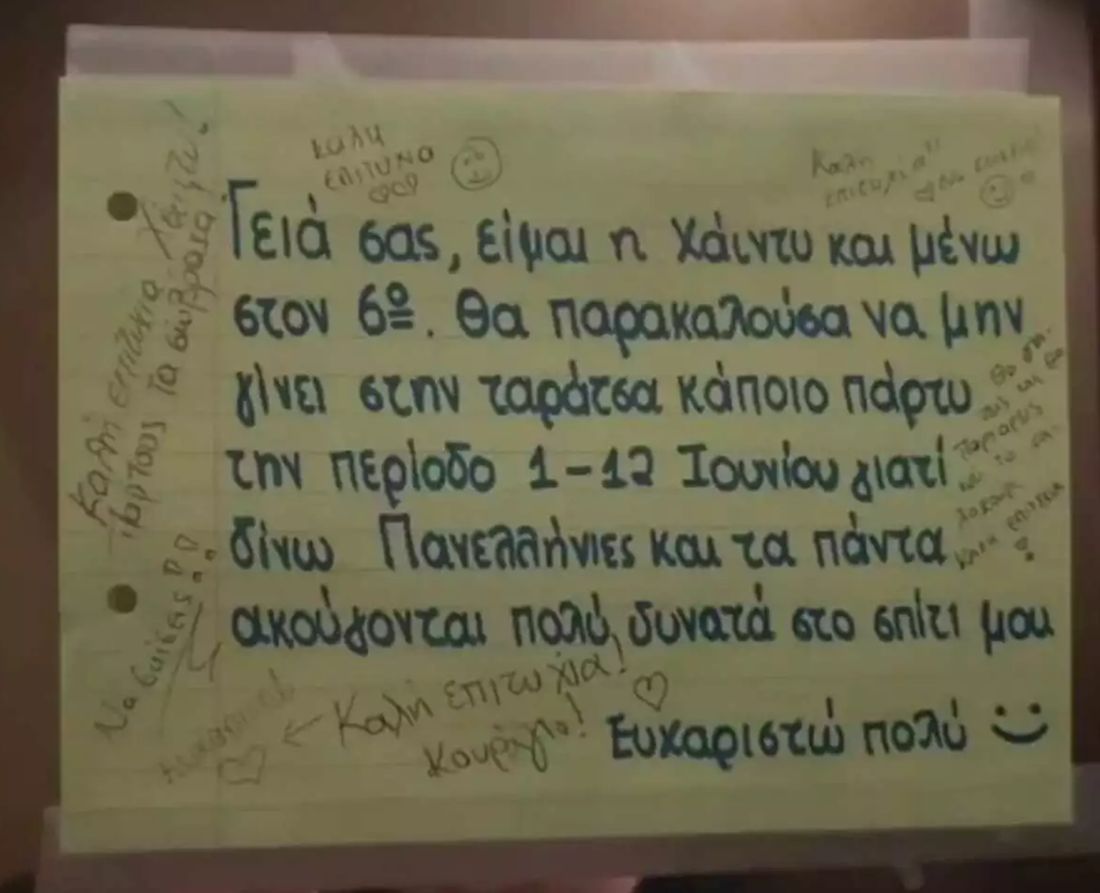 καλη
επιτυχια
Καλη
επιτυχία
Γειά σας, είμαι η Χάιντυ και μένω
στον 6º. Θα παρακαλούσα να μην
γίνει στην ταράτσα κάποιο πάρτυ
την περίοδο 1-12 Ιουνίου γιατί
δίνω Πανελλήνιες και τα πάντα
ακούγονται πολύ δυνατά στο σπίτι μου
Ευχαριστώ πολύ :)
Καλή επιτυχία!
Κουράγιο!
Καλή επιτυχία Χάιντυ!
Να σκίσεις!!
καλη επιτυχια